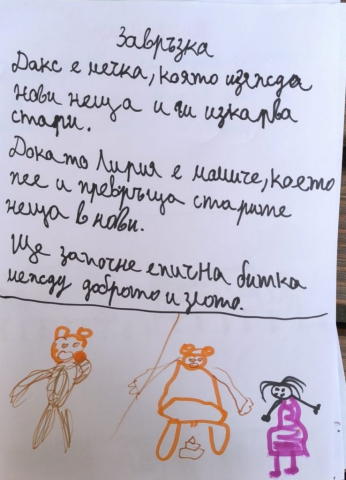 Завръзка
Дакс е мечка, която изяжда
нови неща и ги изкарва
стари.
Докато Лирия е момиче, което
пее и превръща старите
неща в нови.
Ще започне епична битка
между доброто и злото.